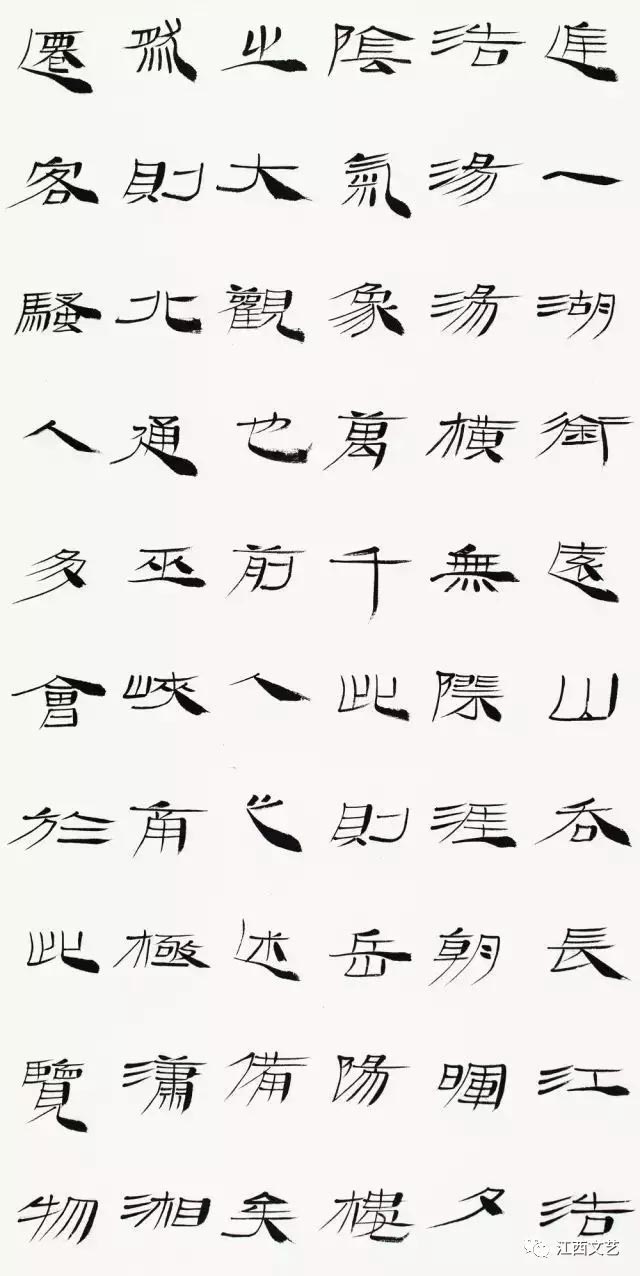 庭一湖銜遠山吞長江浩
浩湯湯橫無際涯朝暉夕
陰氣象萬千此則岳陽樓
之大觀也前人之述備矣
然則北通巫峽南極瀟湘
遷客騷人多會於此覽物
江西文艺